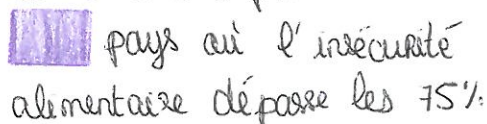 pays où l'insécurité
alimentaire dépasse les 75%